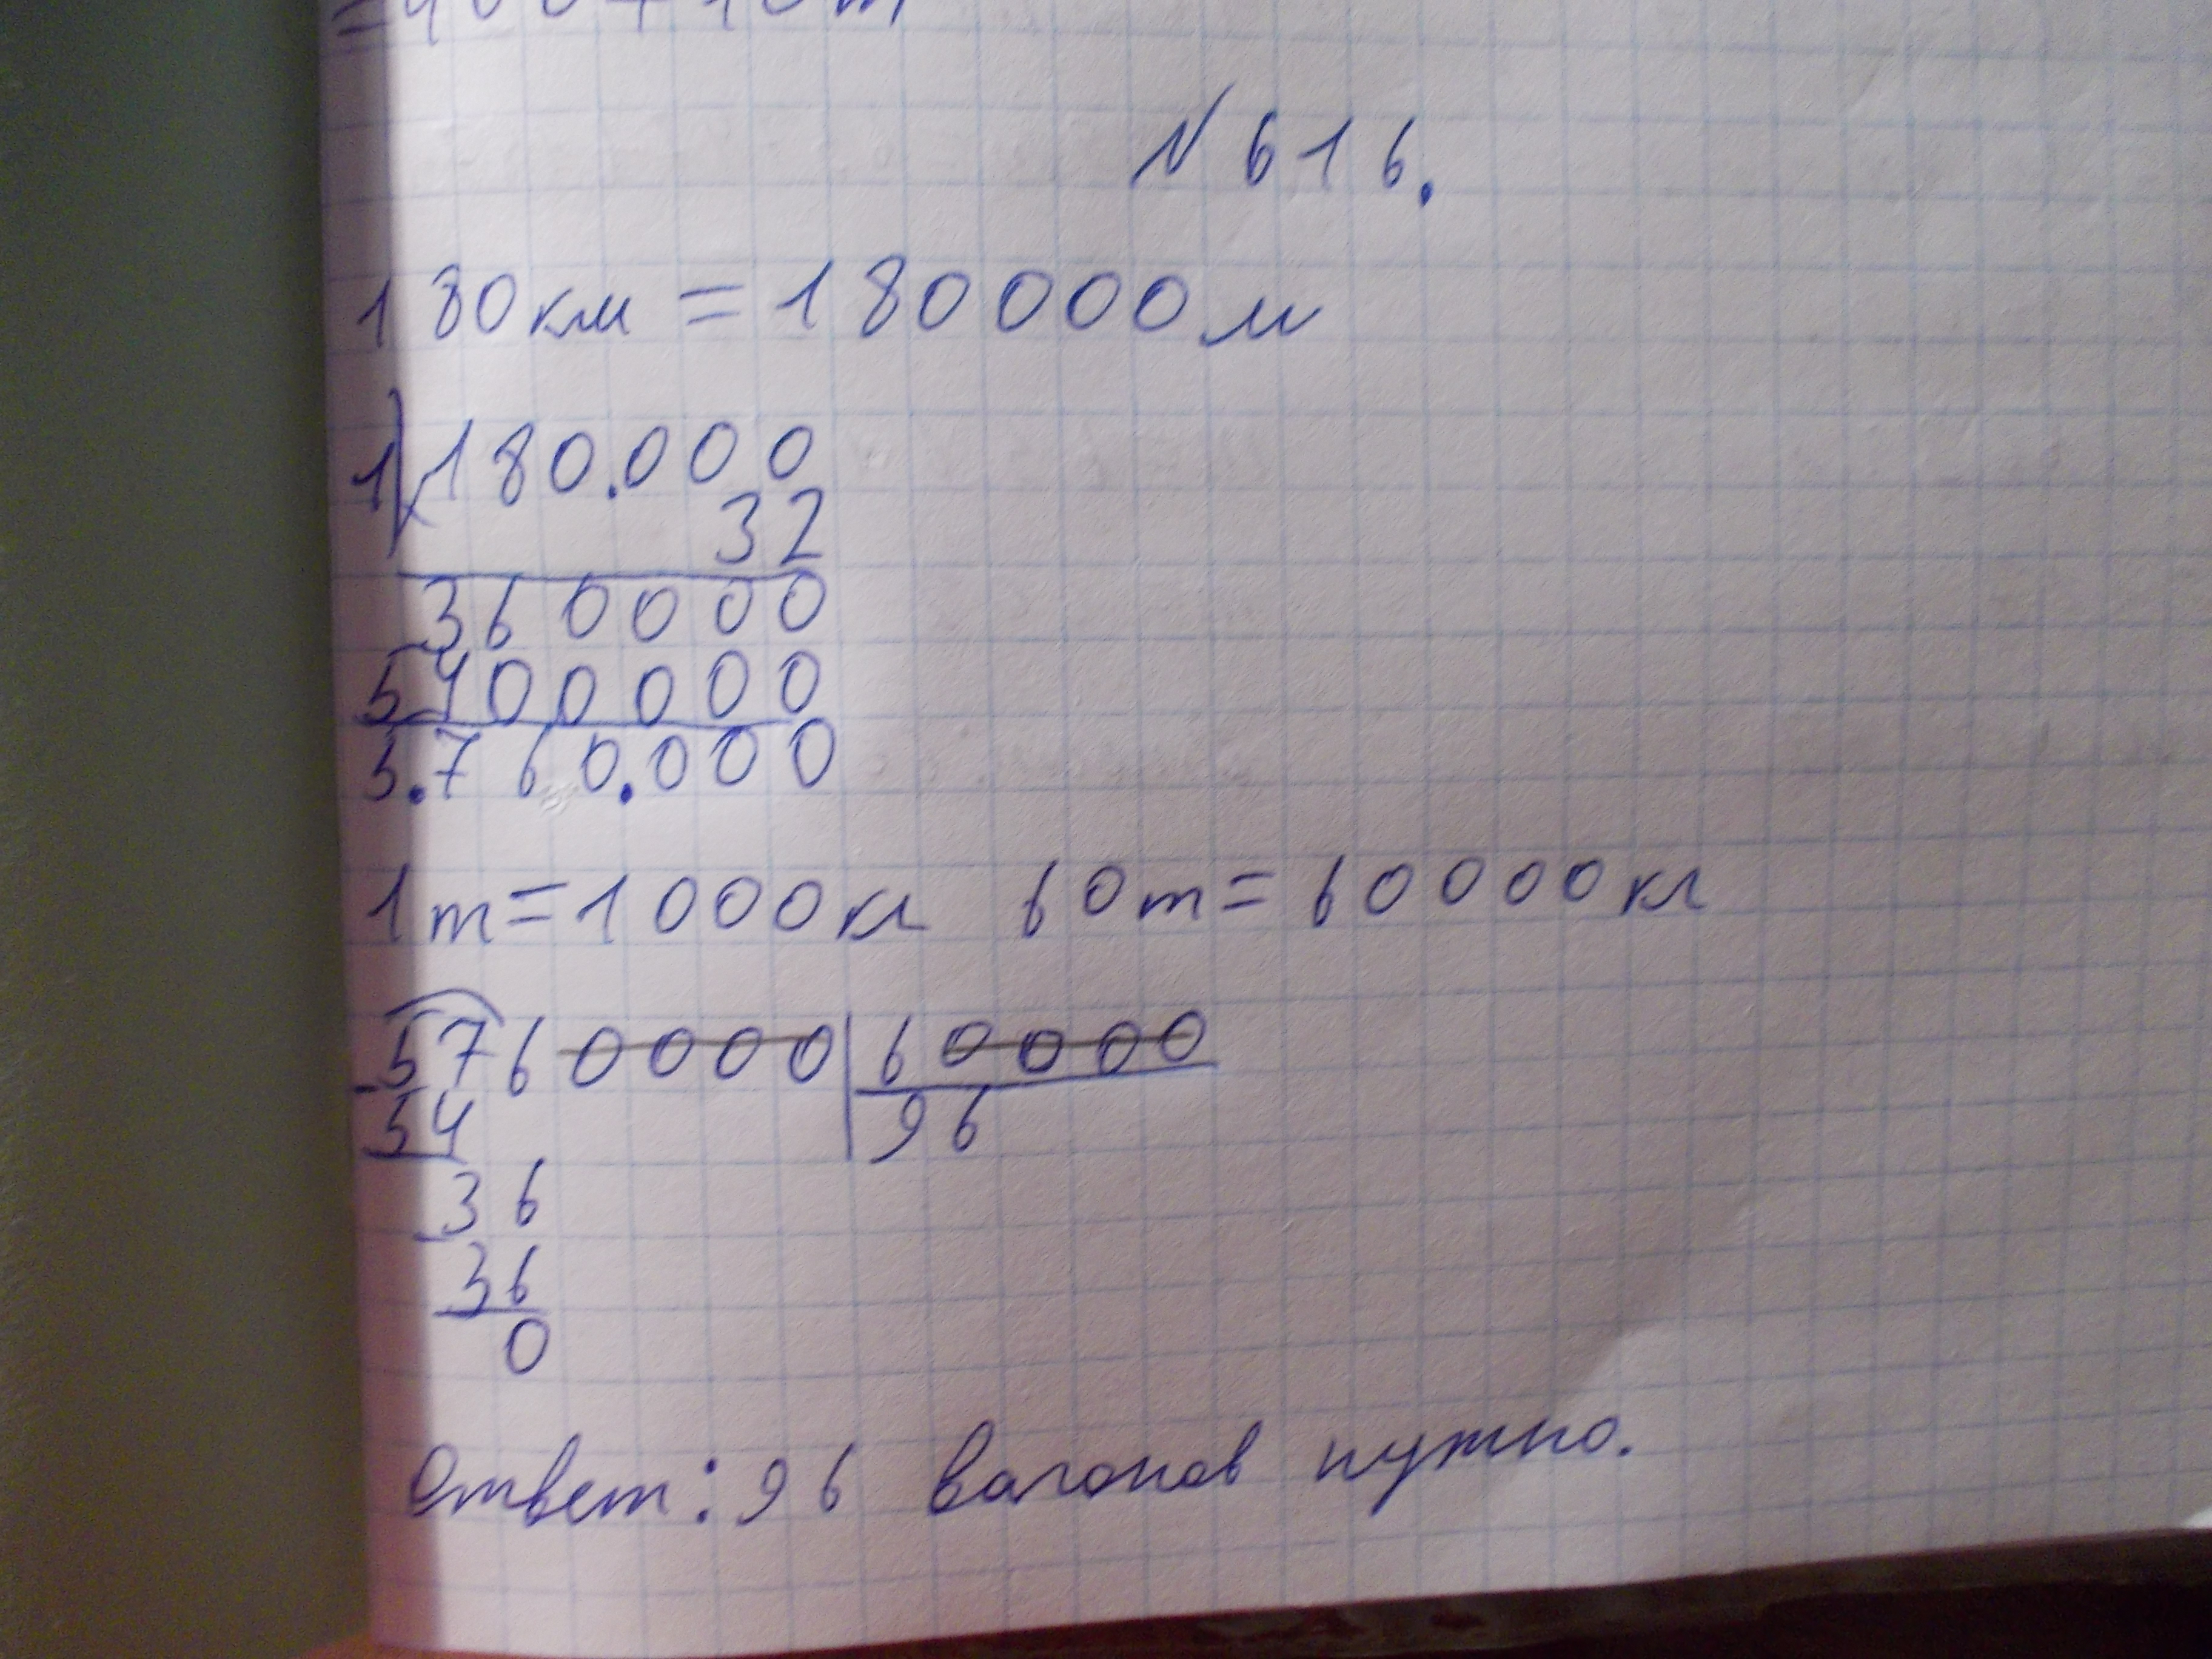 N 616.
180 км = 180000 м
1) 180.000
32
360000
5400000
5.760.000
1 т = 1000 кг 60 т = 60000 кг
5760000 | 60000
54 96
36
36
0
Ответ: 96 вагонов нужно.